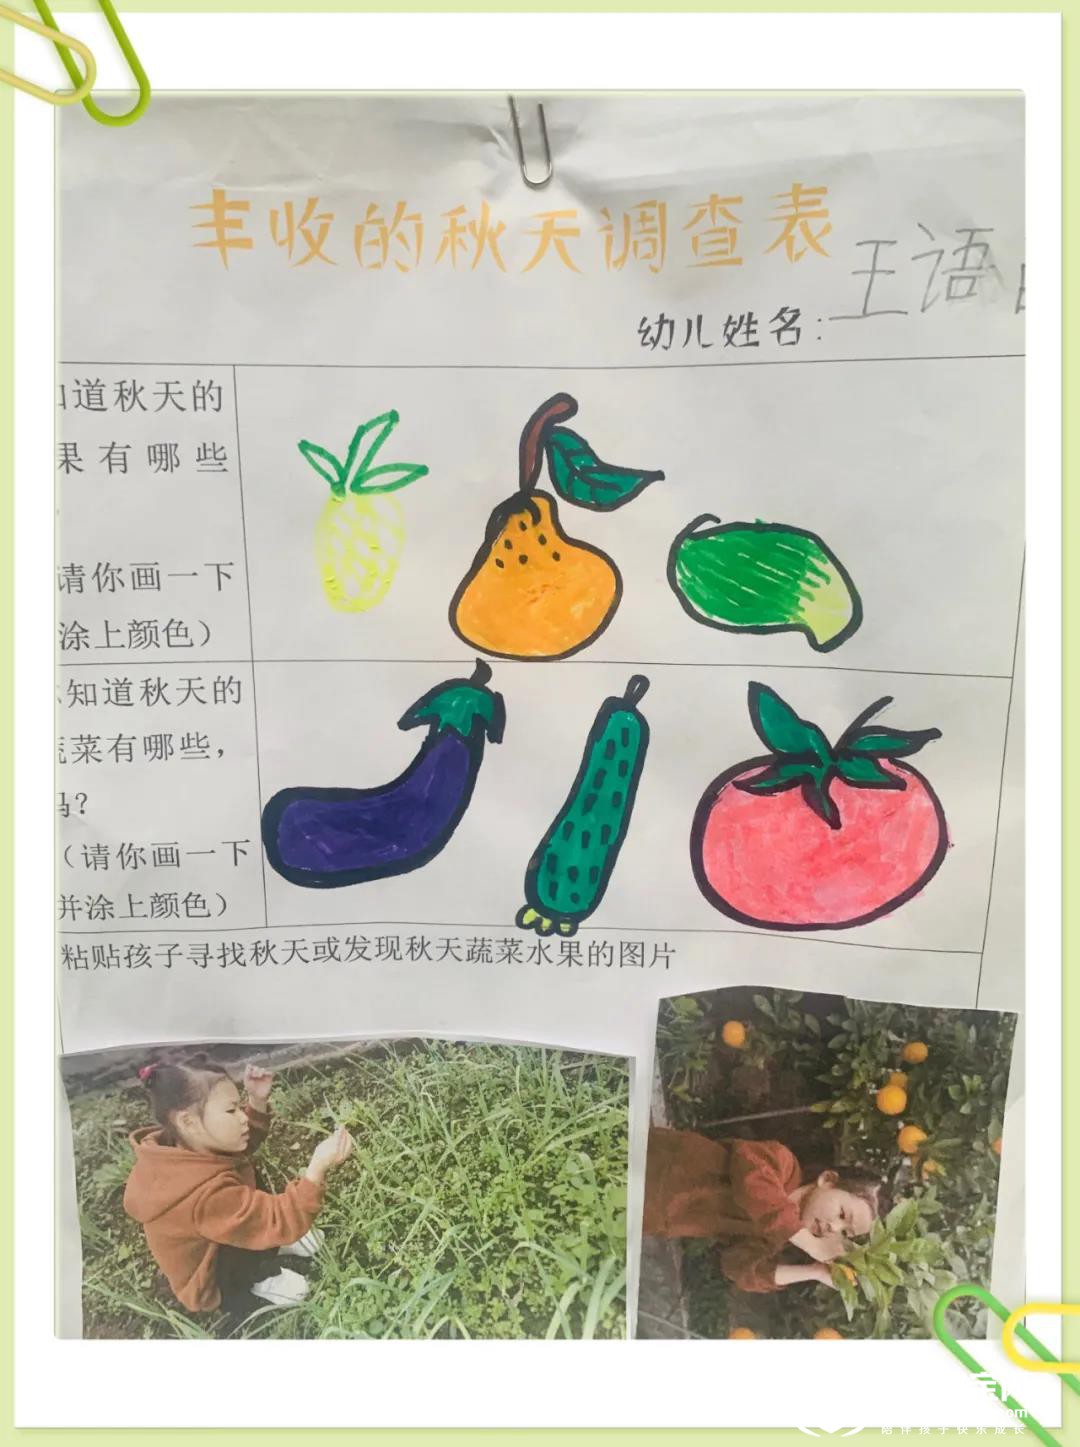 丰收的秋天调查表
幼儿姓名：王语
道秋天的
果有哪些
请你画一下
涂上颜色）
知道秋天的
菜有哪些，
吗？
（请你画一下
并涂上颜色）
粘贴孩子寻找秋天或发现秋天蔬菜水果的图片
陪伴孩子快乐成长